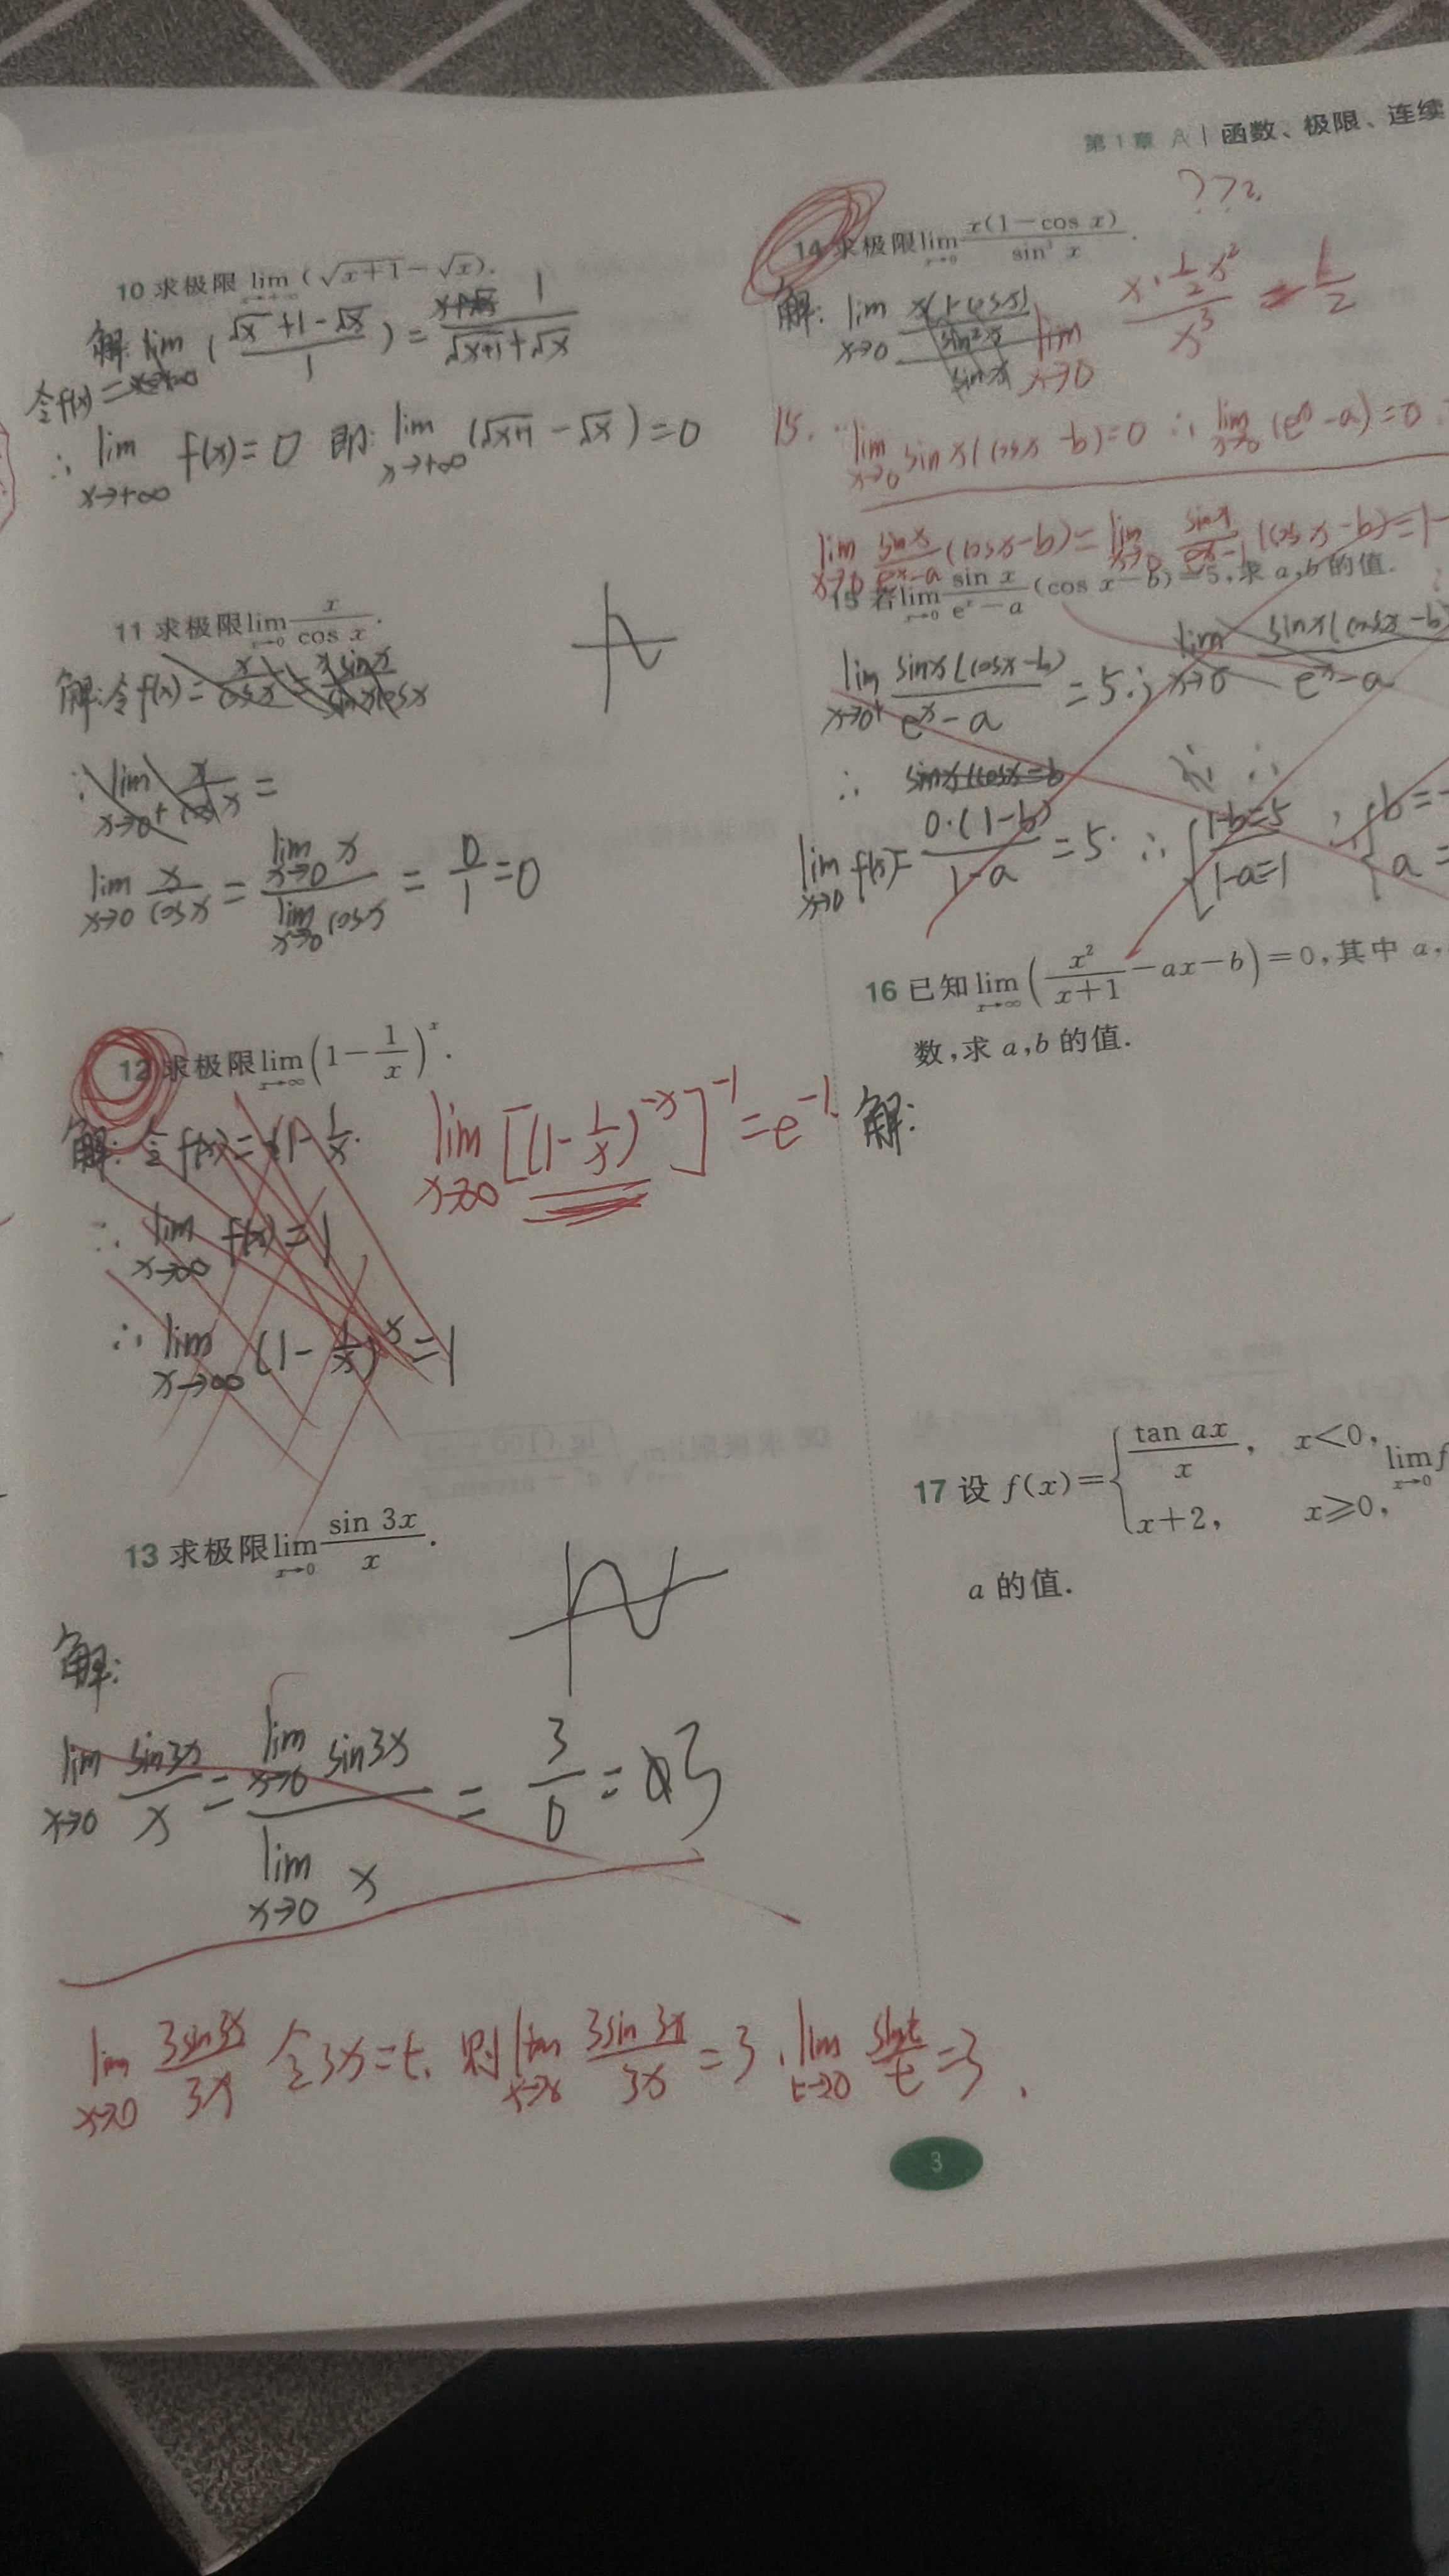 第1章 A | 函数、极限、连续
10 求极限 lim x→+∞ (√(x+1) − √x).
解:
令f(x) = (√x+1−√x)/1 = 1/(√x+1+√x)
∴ lim x→+∞ f(x)=0 即: lim x→+∞ (√x+1 − √x)=0
11 求极限 lim x→0 x/cos x.
解:令f(x)= x/cosx = x sinx/sinxcosx
∵ lim x→0+ x/cosx =
lim x→0 x/cosx = lim x→0 x / lim x→0 cosx = 0/1 =0
12 求极限 lim x→∞ (1−1/x)^x.
解: 令f(x)= 1−1/x.
∴ lim x→∞ f(x)=1
∴ lim x→∞ (1−1/x)^x =1
lim x→∞ [(1−1/x)^−x]^−1 = e^−1.
13 求极限 lim x→0 sin 3x/x.
解:
lim x→0 sin3x/x = lim x→0 sin3x / lim x→0 x = 3/0 = 3
lim x→0 3sin3x/3x 令3x=t. 则 lim x→0 3sin3x/3x =3·lim t→0 sint/t =3.
???
14 求极限 lim x→0 x(1−cos x)/sin³ x.
解: lim x→0 x(1−cosx)
lim x→0 x·½x²/x³ = 1/2
15. ∵ lim x→0 sinx(cosx−b)=0 ∴ lim x→0 (e^x−a)=0
lim x→0 sinx/(e^x−a) (cosx−b)= lim x→0 sinx/(e^x−1) (cosx−b)=1−
15 若 lim x→0 sin x/(e^x−a) (cos x−b)=5,求 a,b 的值.
lim x→0+ sinx(cosx−b)/(e^x−a) =5 ∴ lim x→0 sinx(cosx−b)/(e^x−a)
∴ sinx(cosx−b)
lim x→0 f(x)= 0·(1−b)/(1−a) =5 ∴ {1−b=5 1−a=1 ∴ {b=− a=
16 已知 lim x→∞ (x²/(x+1) −ax−b)=0,其中 a,
数,求 a,b 的值.
解:
17 设 f(x)={tan ax/x, x<0, x+2, x≥0, lim x→0 f
a 的值.
3